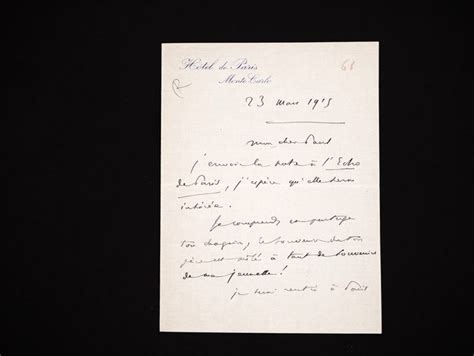 Hôtel de Paris
Monte Carlo
68
23 Mars 1915
mon cher Paul
j'envoie la note à l'Echo
de Paris, j'espère qu'elle sera
insérée.
Je comprends et partage
ton chagrin, le souvenir de ton
père est mêlé à tant de souvenirs
de ma jeunesse!
je serai rentré à Paris